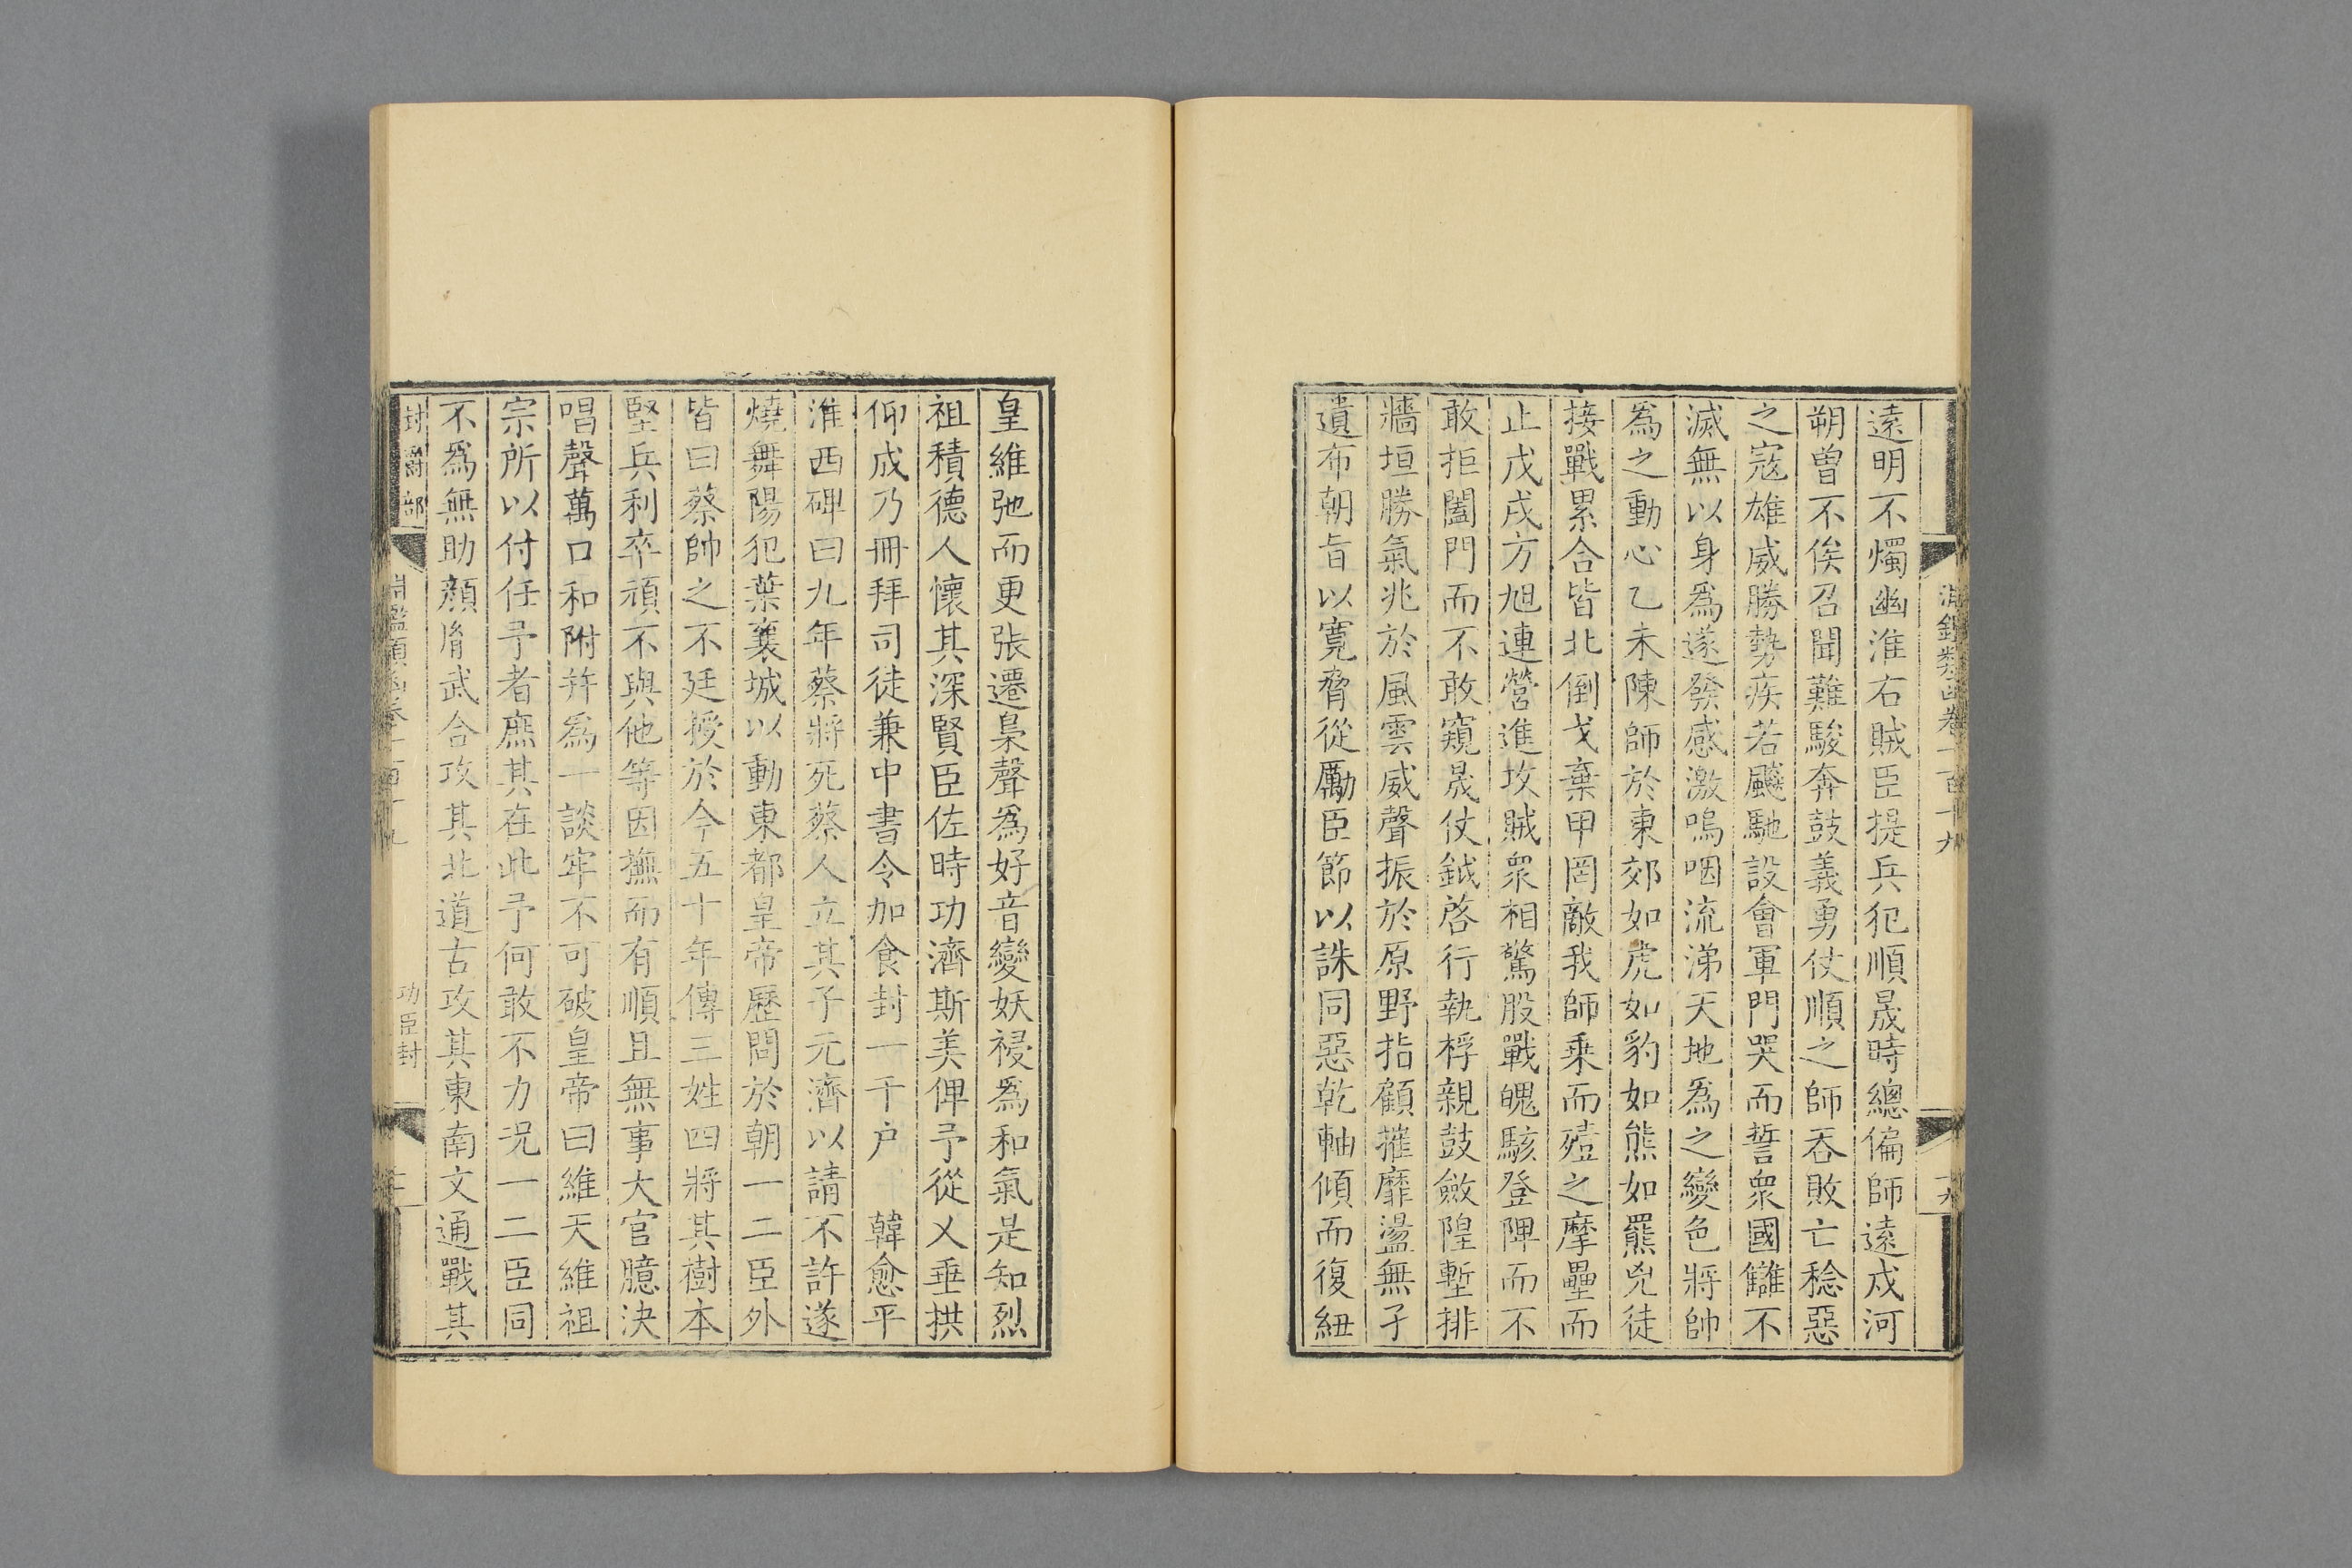 淵鑑類函卷一百十九
遠明不燭幽淮右賊臣提兵犯順晟時總偏師遠戍河
朔曾不俟召聞難駿奔鼓義勇仗順之師吞敗亡稔惡
之寇雄威勝勢疾若飇馳設會軍門哭而誓衆國讎不
滅無以身爲遂發感激嗚咽流涕天地爲之變色將帥
爲之動心乙未陳師於東郊如虎如豹如熊如羆兇徒
接戰累合皆北倒戈棄甲罔敵我師乗而殪之摩壘而
止戊戌方旭連營進攻賊衆相驚股戰魄駭登陴而不
敢拒闔門而不敢窺晟仗鉞啓行執桴親鼓斂隍塹排
牆垣勝氣兆於風雲威聲振於原野指顧摧靡盪無孑
遺布朝旨以寛脅從勵臣節以誅同惡乾軸傾而復紐
皇維弛而更張遷梟聲爲好音變妖祲爲和氣是知烈
祖積德人懷其深賢臣佐時功濟斯美俾予從乂垂拱
仰成乃冊拜司徒兼中書令加食封一千户 韓愈平
淮西碑曰九年蔡將死蔡人立其子元濟以請不許遂
燒舞陽犯葉襄城以動東都皇帝歷問於朝一二臣外
皆曰蔡帥之不廷授於今五十年傳三姓四將其樹本
堅兵利卒頑不與他等因撫而有順且無事大官臆決
唱聲萬口和附并爲一談牢不可破皇帝曰維天維祖
宗所以付任予者庶其在此予何敢不力况一二臣同
不爲無助顏胤武合攻其北道古攻其東南文通戰其
封爵部 淵鑑類函卷一百十九 功臣封